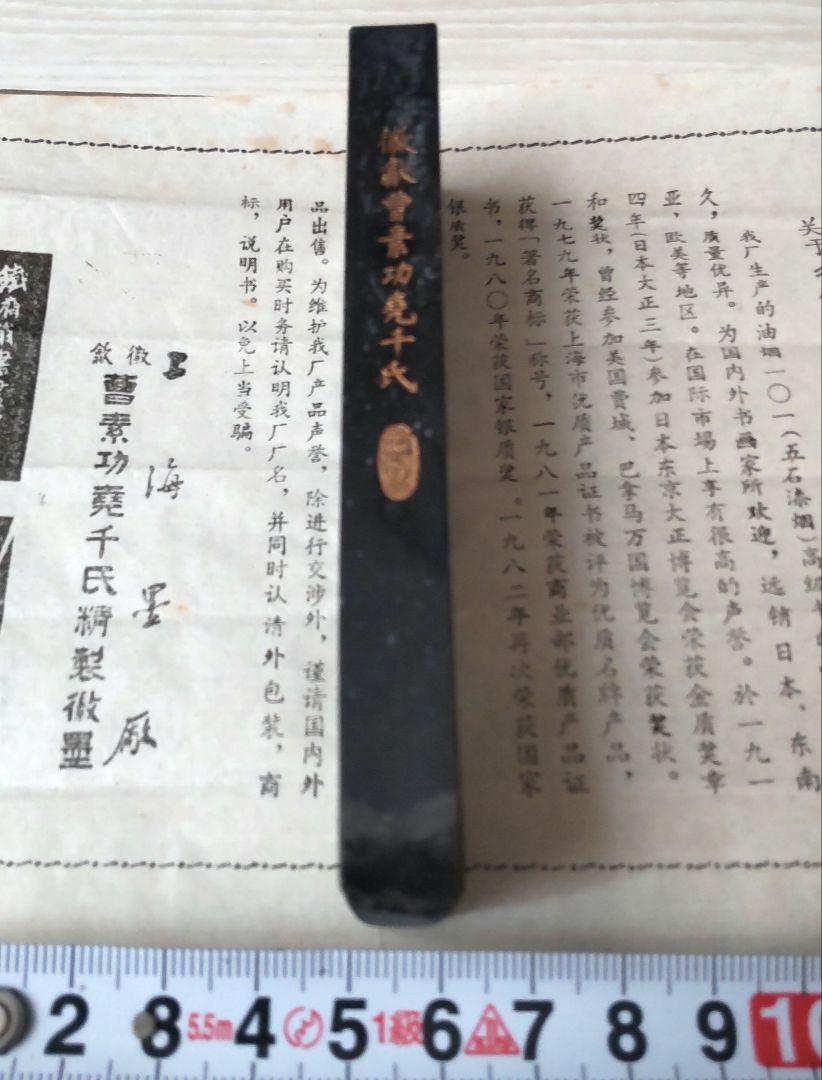 徽歙曹素功堯千氏
我厂生产的油烟一〇一(五石漆烟)高级书
久，质量优异。为国内外书画家所欢迎，远销日本、东南
亚，欧美等地区。在国际市場上享有很高的声誉。於一九一
四年(日本大正三年)参加日本东京大正博览会荣获金质奖章
和奖状，曾经参加美国费城、巴拿马万国博览会荣获奖状。
一九七九年荣获上海市优质产品证书被评为优质名牌产品，
获得「著名商标」称号，一九八一年荣获商业部优质产品证
书，一九八〇年荣获国家银质奖。一九八二年再次荣获国家
银质奖。
品出售。为维护我厂产品声誉，除进行交涉外，谨请国内外
用户在购买时务请认明我厂厂名，并同时认清外包装，商
标，说明书。以免上当受骗。
上海墨厰
徽歙
曹素功堯千氏精製徽墨
2 3 4 5 6 7 8 9 10
5.5m
1級